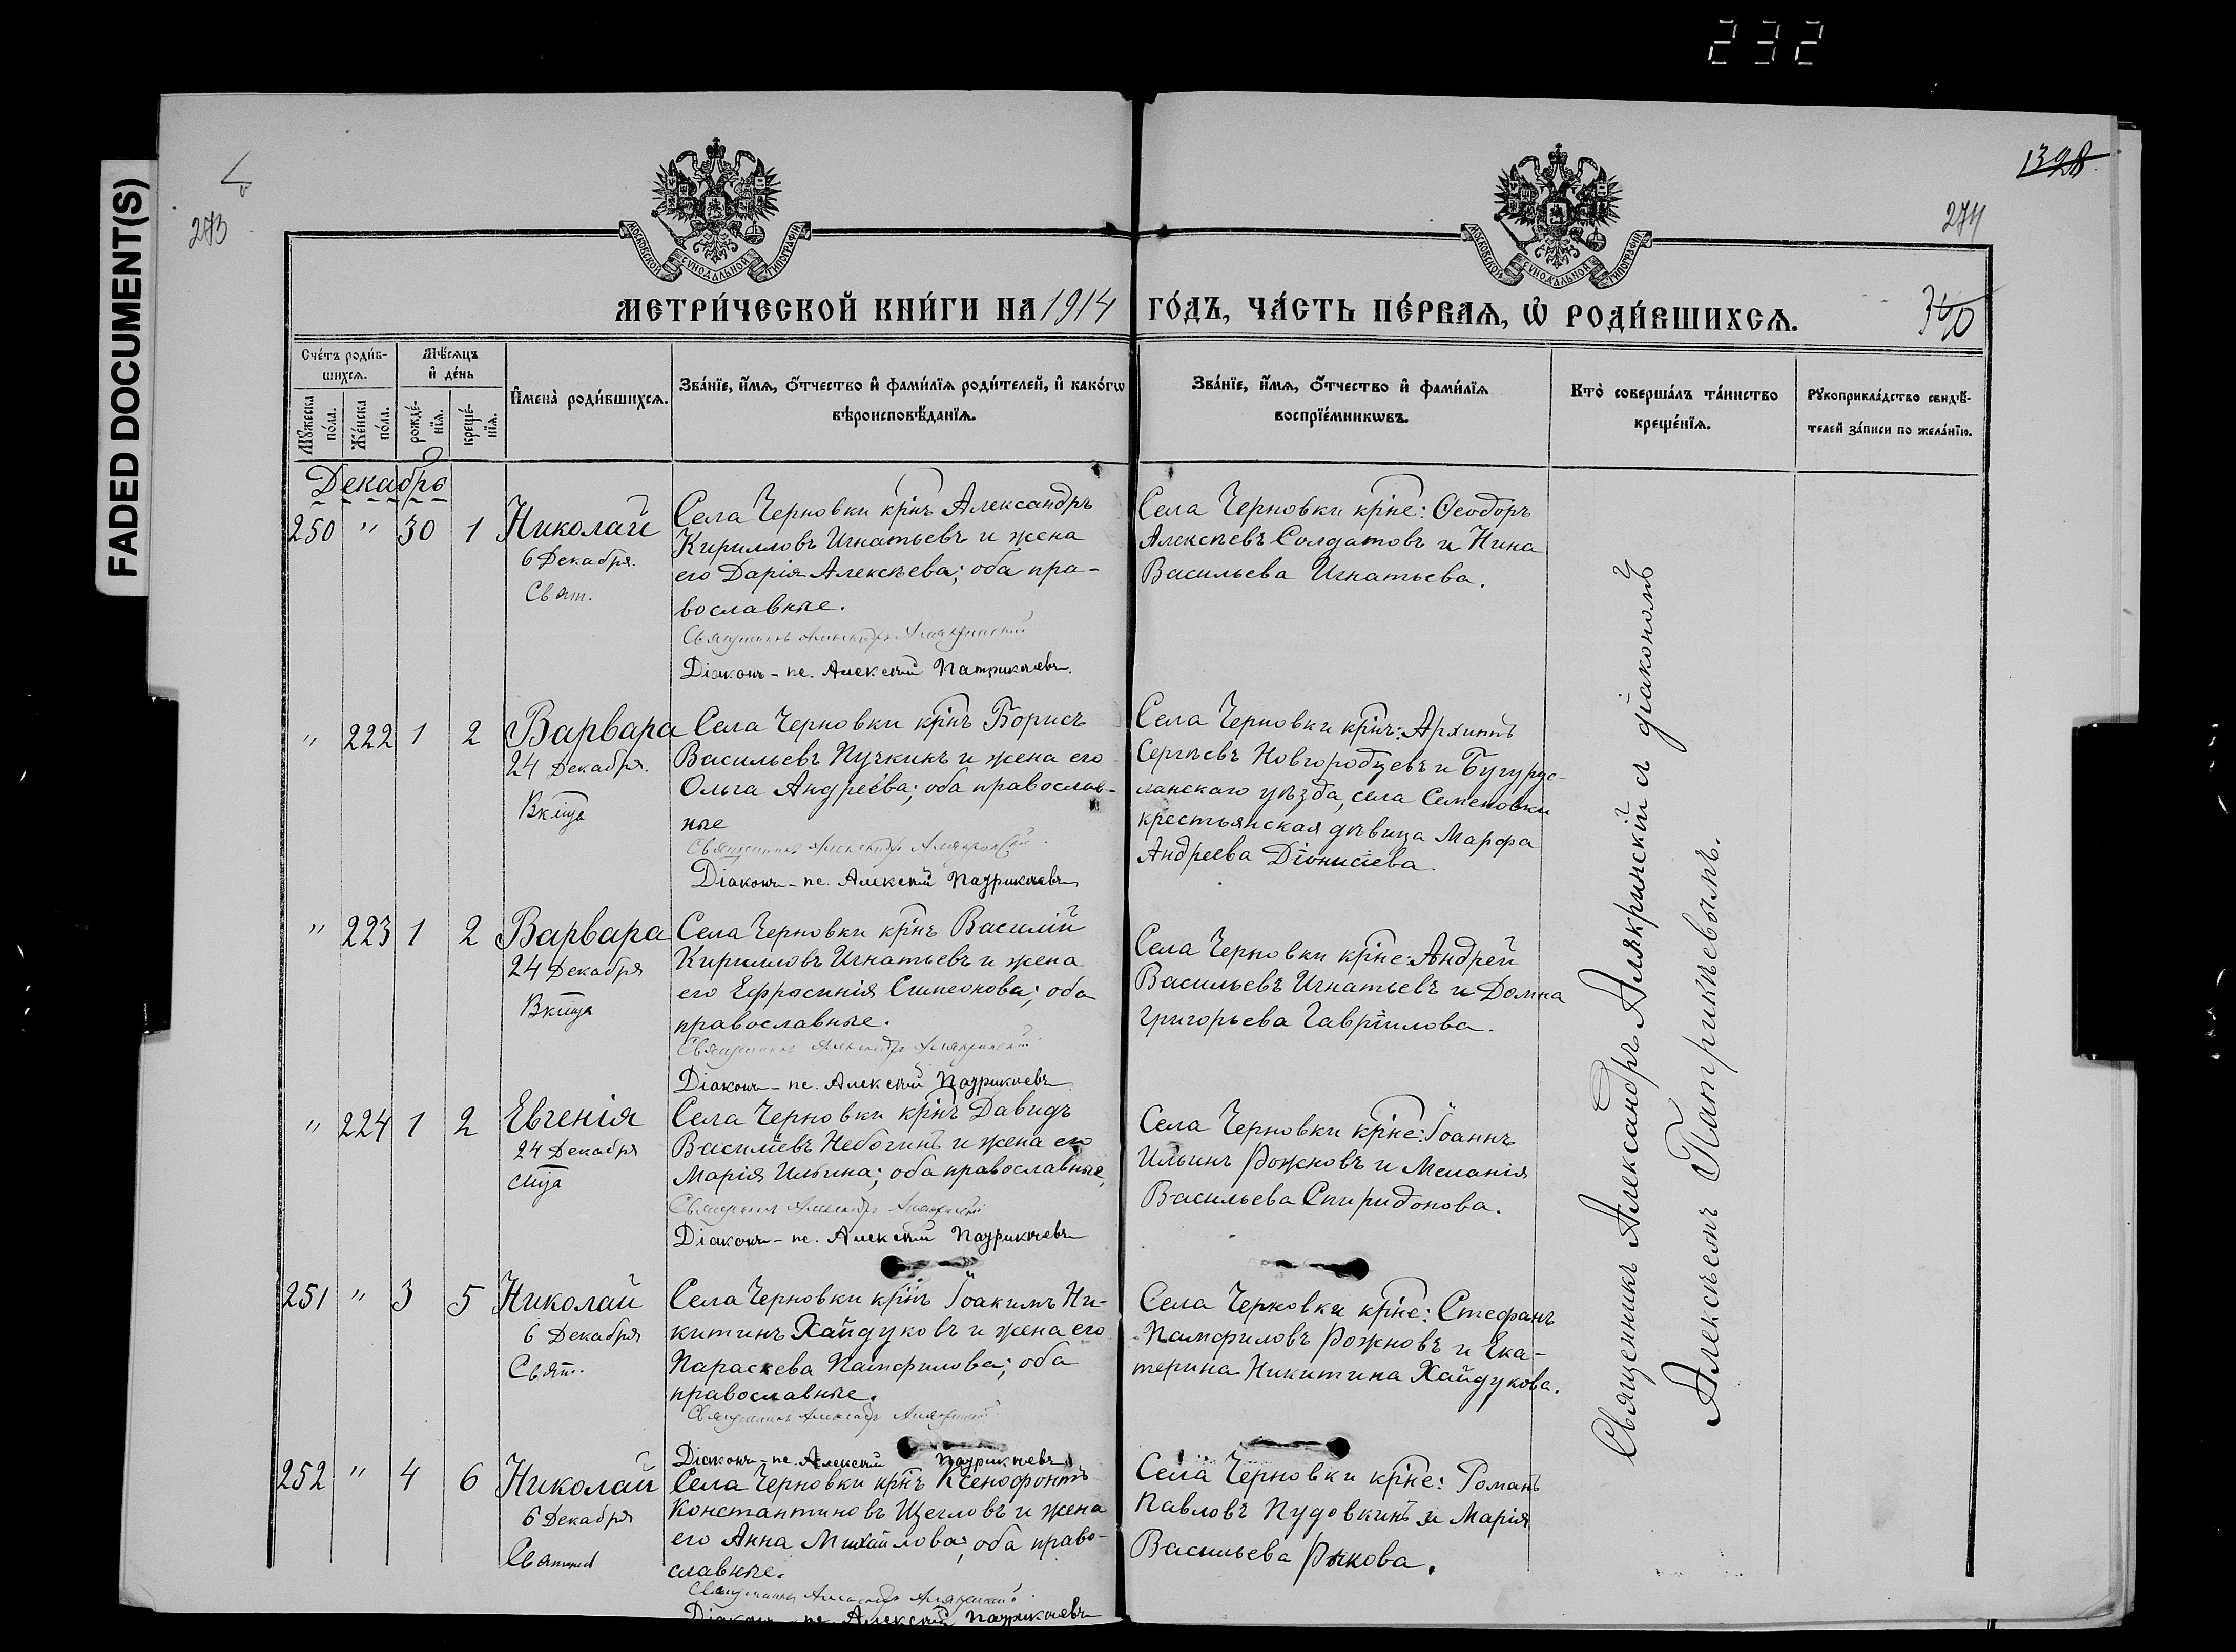 232
FADED DOCUMENT(S)
1328
273
274
340
МОСКОВСКОЙ СѴНОДАЛЬНОЙ ТИПОГРАФІИ
МОСКОВСКОЙ СѴНОДАЛЬНОЙ ТИПОГРАФІИ
МЕТРИ́ЧЕСКОЙ КНИ́ГИ НА 1914 ГО́ДЪ, ЧА́СТЬ ПЕ́РВАѦ, Ѡ҆ РОДИ́ВШИХСѦ.
Сче́тъ роди́в-
шихсѧ.
Мѣ́сѧцъ
и҆ де́нь
Мꙋ́жеска
по́ла.
Же́нска
по́ла.
рожде́-
нїѧ.
креще́-
нїѧ.
И҆мена̀ роди́вшихсѧ.
Зва́нїе, и҆́мѧ, ѻ҆́тчество и҆ фами́лїѧ роди́телей, и҆ како́гѡ
вѣроисповѣ́данїѧ.
Зва́нїе, и҆́мѧ, ѻ҆́тчество и҆ фами́лїѧ
воспрїе́мникѡвъ.
Кто̀ соверша́лъ та́инство
креще́нїѧ.
Рꙋкоприкла́дство свидѣ́-
телей за́писи по жела́нїю.
Декабрь
250 " 30 1 Николай
6 Декабря.
Свят.
Села Черновки крнъ Александръ
Кирилловъ Игнатьевъ и жена
его Дарія Алексѣева; оба пра-
вославные.
Священникъ Александръ Алякринскій
Діаконъ - пс. Алексѣй Патрикѣевъ.
Села Черновки крне: Ѳеодоръ
Алексѣевъ Солдатовъ и Нина
Васильева Игнатьева.
" 222 1 2 Варвара
24 Декабря.
Вкмца
Села Черновки крнъ Борисъ
Васильевъ Пучкинъ и жена его
Ольга Андреева; оба православ-
ные
Священникъ Александръ Алякринскій
Діаконъ - пс. Алексѣй Патрикѣевъ
Села Черновки крнъ: Архиппъ
Сергѣевъ Новгородцевъ и Бугурус-
ланскаго уѣзда, села Семеновки
крестьянская дѣвица Марѳа
Андреева Діонисіева.
" 223 1 2 Варвара
24 Декабря
Вкмца
Села Черновки крнъ Василій
Кирилловъ Игнатьевъ и жена
его Ефросинія Симеонова; оба
православные.
Священникъ Александръ Алякринскій
Діаконъ - пс. Алексѣй Патрикѣевъ
Села Черновки крне: Андрей
Васильевъ Игнатьевъ и Домна
Григорьева Гавріилова.
" 224 1 2 Евгенія
24 Декабря
мца
Села Черновки крнъ Давидъ
Васильевъ Небогинъ и жена его
Марія Ильина; оба православные,
Священникъ Александръ Алякринскій
Діаконъ - пс. Алексѣй Патрикѣевъ
Села Черновки крне: Іоаннъ
Ильинъ Рожновъ и Меланія
Васильева Спиридонова.
251 " 3 5 Николай
6 Декабря
Свят.
Села Черновки крнъ Іоакимъ Ни-
китинъ Хайдуковъ и жена его
Параскева Памфилова; оба
православные.
Священникъ Александръ Алякринскій
Діаконъ - пс. Алексѣй Патрикѣевъ
Села Черновки крне: Стефанъ
Памфиловъ Рожновъ и Ека-
терина Никитина Хайдукова.
252 " 4 6 Николай
6 Декабря
Святит
Села Черновки крнъ Ксенофонтъ
Константиновъ Щегловъ и жена
его Анна Михайлова; оба право-
славные.
Священникъ Александръ Алякринскій
Діаконъ - пс. Алексѣй Патрикѣевъ
Села Черновки крне: Романъ
Павловъ Пудовкинъ и Марія
Васильева Рыкова.
Священникъ Александръ Алякринскій съ діакономъ
Алексѣемъ Патрикѣевымъ.